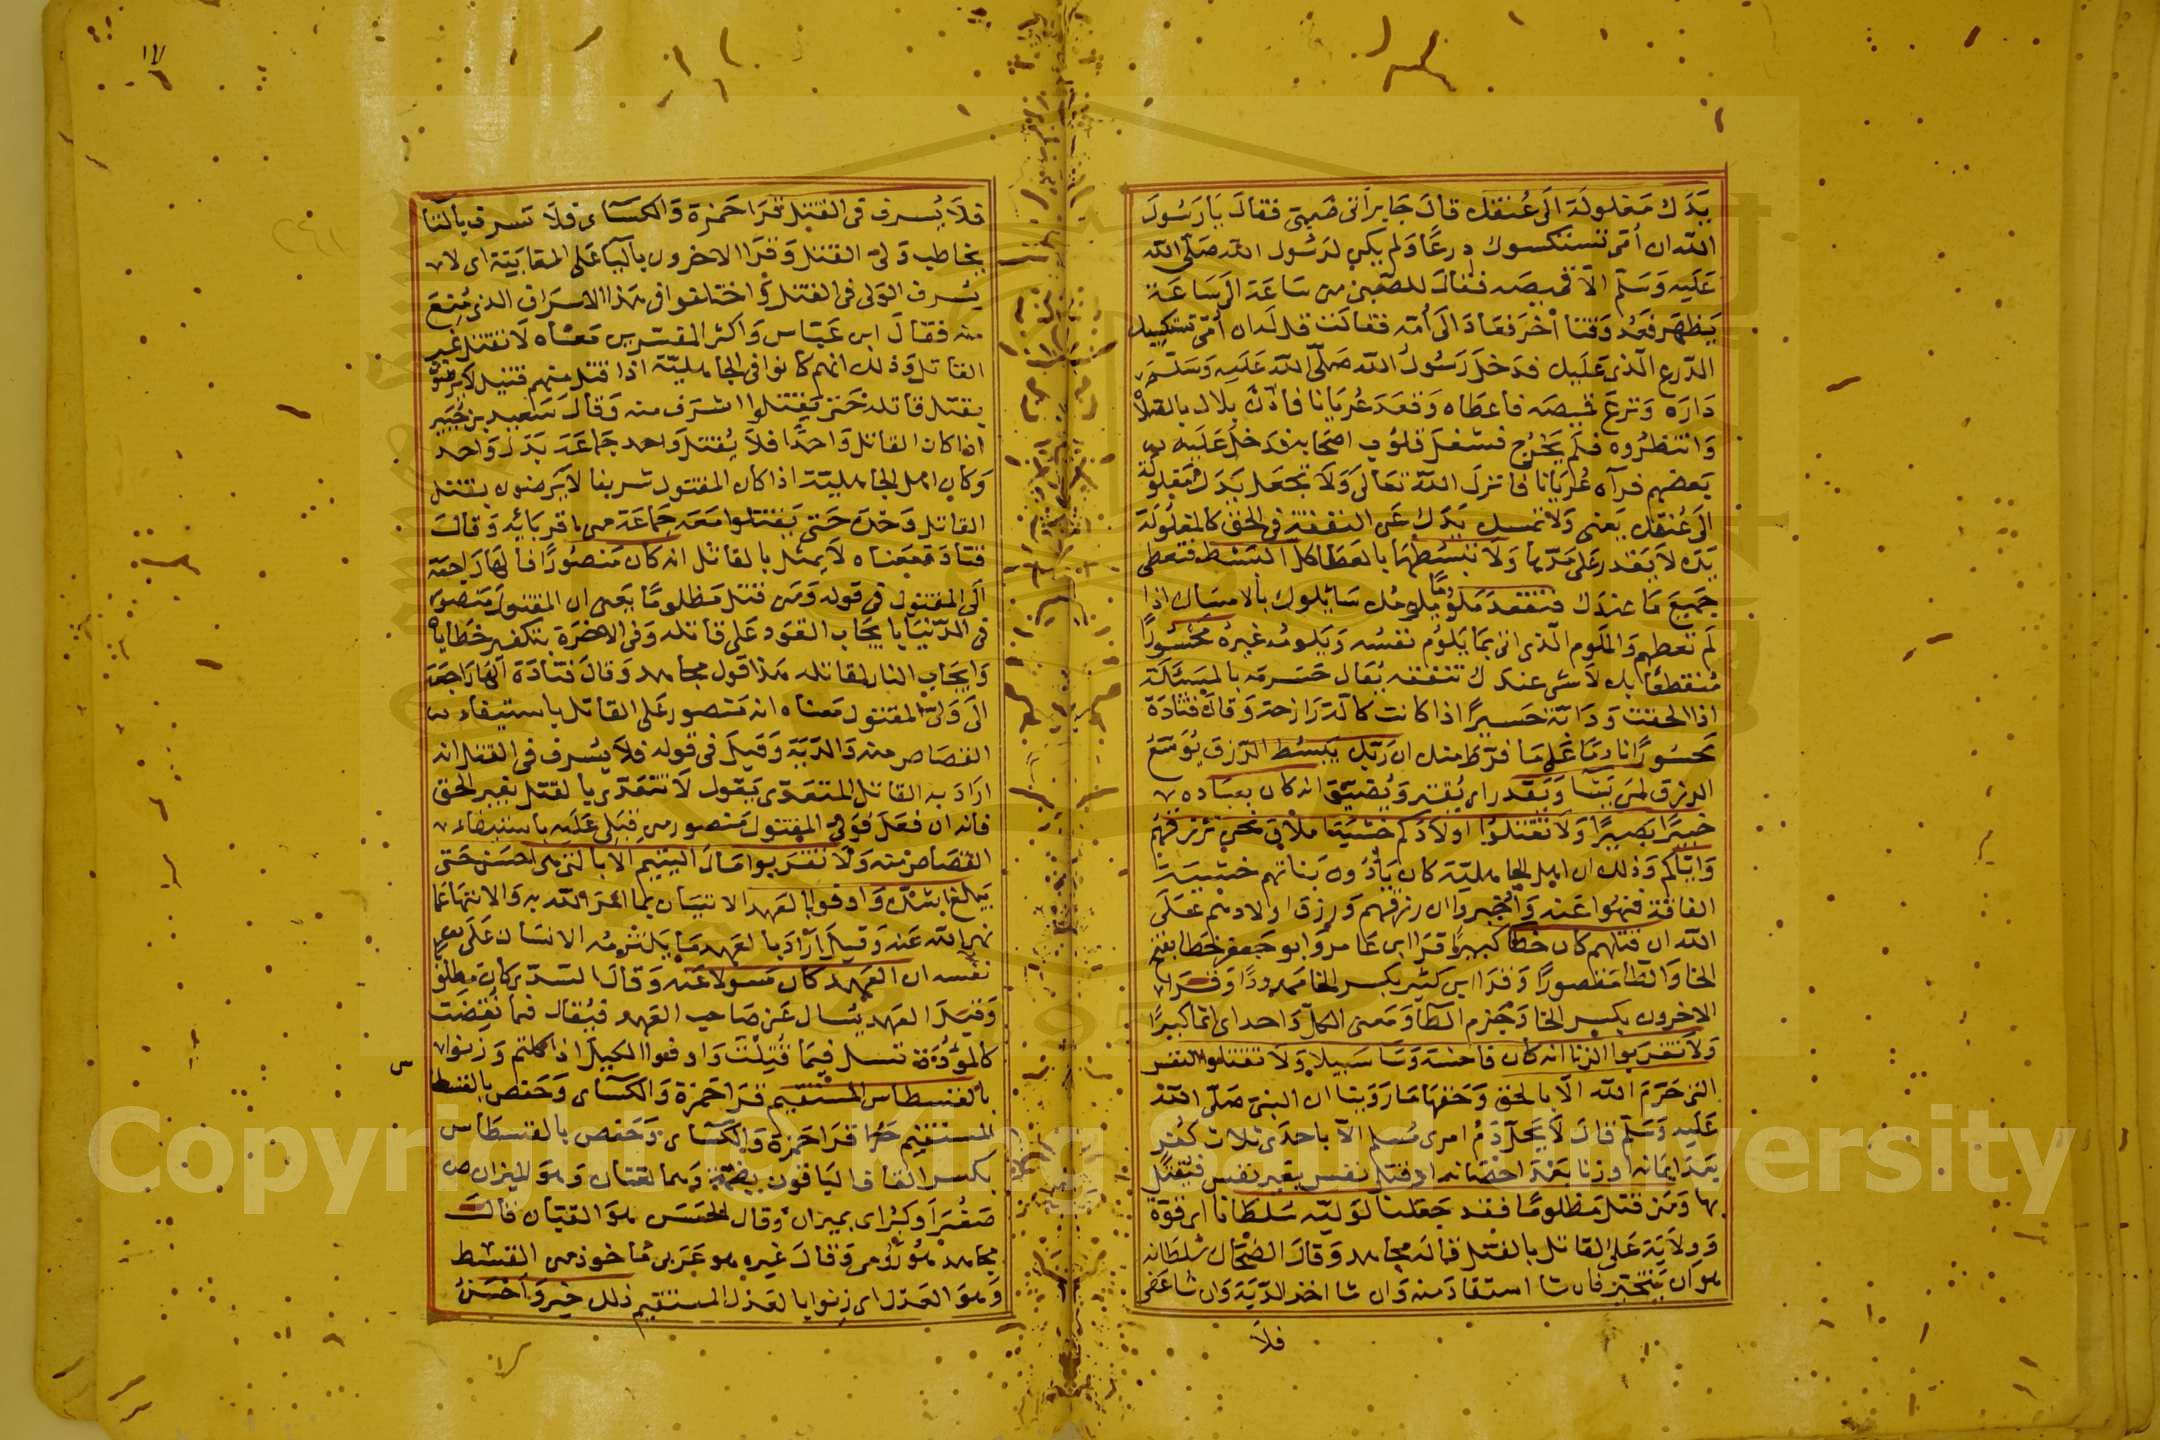 يَدَك مَغلولَة الَى عُنقك قالَ جَابر اَتى صَبِيّ فقالَ يَا رَسُولَ
اللّه ان اُمّى تستكسوك دِرعًا وَلم يكن لرَسُول اللّه صَلّى اللّه
عَلَيه وَسَلّم الّا قميصَه فقالَ للصّبى من سَاعَة الَى سَاعَة
يَظهَر فعُد وَقتا اٰخرَ فعَادَ الَى اُمّه فقالت قل لَه ان اُمّى تستكسيك
الدّرع الّذى عَلَيك فدَخلَ رَسُولُ اللّه صَلّى اللّه عَلَيه وَسَلّمَ
دَارَه وَنزعَ قميصَه فاعطَاه وَقعَدَ عُريَانا فاَذّنَ بلال بالصّلاة
وَانتظرُوه فلَم يَخرُج فشغلَ قلوُب اصحَابه فدَخلَ عَلَيه
بَعضهم فرَآه عُريَانا فانزلَ اللّه تعَالَى وَلَا تجعَل يَدَك مَغلولَة
الَى عُنقك يَعنى وَلَا تمسك يَدَك عَن النفقة فى الحَق كالمغلولَة
يَدَه لَا يَقدر عَلى مَدّها وَلَا تبسُطهَا بالعَطَا كلّ البَسْط فتعطى
جَميعَ مَا عندَك فتقعدَ مَلوُمًا يلومُك سَائلوك بالامسَاك اذا
لَم تعطهم وَالملوم الّذى اتى بمَا يَلوُم نفسُه وَيَلومُه غيرهُ مَحْسُورًا
مُنقطعًا بك لَا شى عندَك تنفقه يُقال حَسَرته بالمَسئلَة
اذا الحَفت وَدَابّة حَسيرًا اذا كانت كالّة رَازحة وَقالَ قتادَة
مَحسُورًا نادمًا عَلى مَا فرَط منك ان رَبّك يَبسُط الرّزق يُوَسّعُ
الرزق لمَن يَشا وَيَقدر اى يُقتر وَيُضَيّق انه كان بعبَاده
خبيرًا بَصيرًا وَلَا تقتلوُا اولَادَكم خشيَة املَاق نحن نرزقهُم
وَايّاكم وَذلك ان اهل الجاهليّة كان يَأدُونَ بَناتهم خشيَة
الفاقة فنهُوا عَنه وَاُخبروا ان رزقهم وَرزق اولادهم عَلَى
اللّه ان قتلهم كان خطأ كبيرًا قرَا ابن عَامر وَابو جَعفر خَطا بفتح
الخا وَالطا مَقصورًا وَقرَا ابن كثير بكسر الخا ممدودًا وَقرَا
الاخرون بكسر الخا وَجَزم الطّا وَمَعنى الكلّ وَاحد اى اثما كبيرًا
وَلَا تقرَبوا الزنا انه كان فاحشة وَسَا سَبيلا وَلَا تقتلوا النفس
التى حَرّمَ اللّه الّا بالحَق وَحَقهَا مَا رَوَينا ان النبىّ صَلّى اللّه
عَلَيه وَسَلّم قالَ لَا يَحلّ دَمُ امرى مُسلم الّا باحدَى ثلَاث كُفر
بَعدَ ايمَانه او زنا بَعْدَ احصَانه او قتل نفس بغَير نفس فيُقتَل
بها وَمَن قتل مَظلومًا فقد جَعَلنا لوَليّه سَلطَانا اى قوّة
وَوِلَايَة عَلى القاتل بالقتل قالَه مجاهد وَقالَ الضحّاك سُلطَانه
هوَ ان يَتخيّر فان شا استقادَ منه وَان شا اخذ الدّيَة وَان شا عَفى
فلَا
فلَا يُسرف فى القتل قرَا حَمزة وَالكسَائى فلَا تسرف بالتا
يخاطب وَلىّ القتل وَقرَا الاخرون باليا عَلى المغايبَة اى لا
يُسرف الوَلى فى القتل وَاختلفوا فى هَذا الاسرَاف الذى مُنِعَ
منه فقالَ ابن عَبّاس وَاكثر المفسّرين مَعناه لَا تقتل غير
القاتل وَذلك انهم كانوا فى الجاهليّة اذا قتل منهم قتيل لَا يَرضون
بقتل قاتله حَتى يَقتلوا اشرَف منه وَقالَ سَعيد بن جُبَير
اذا كان القاتل وَاحدًا فلَا يُقتل وَاحد جَمَاعَة بَدَلَ وَاحد
وَكان اهل الجاهليّة اذا كان المقتول شريفا لَا يَرضون بقتل
القاتل وَحْدَه حَتى يَقتلوا مَعَه جَمَاعَة من اقربَائه وَقالَ
قتادَة مَعناه لَا يمثل بالقاتل انه كان مَنصُورًا فالهَا رَاجعَة
الَى المقتول فى قوله وَمَن قتل مَظلومًا يَعنى ان المقتول مَنصور
فى الدّنيَا بايجَاب القوَد عَلى قاتله وَفى الاخرَة بتكفير خطَايَاه
وَايجَاب النار لقاتله هَذا قول مجاهد وَقالَ قتادَة اَلهَا رَاجعَة
الَى وَلىّ المقتول مَعناه انه مَنصور عَلى القاتل باستيفاء
القصَاص منه وَالدّيَة وَقيلَ فى قوله فلَا يُسرف فى القتل انه
ارَادَ به القاتل المتعَدّى يَقول لَا تتعَدّى بالقتل بغير الحق
فانه ان فعَلَ فوَلىّ المقتول مَنصور من قِبَلى عَلَيه باستيفاء
القصَاص منه وَلَا تقرَبوا مَالَ اليَتيم الا بالتى هى احسَن حَتى
يَبلغ اَشدّه وَاوفوا بالعَهد الاتيَان بما امَرَ اللّه به وَالانتهَا عَمّا
نهى اللّه عَنه وَقيلَ ارَادَ بالعَهد مَا يَلتزمُه الانسَان عَلَى
نفسه ان العَهد كان مَسولًا عَنه وَقالَ السّدّى كان مَطلوبًا
وَقيلَ العَهد يُسال عَن صَاحب العَهد فيُقال فيما نُقِضَت
كالموْؤُدَة تسل فيمَا قُتِلْتَ وَاوفوا الكَيلَ اذا كلتم وَزنوا
بالقسطاس المستقيم قرَا حَمزة وَالكسَائى وَحَفص بالقسطا
المستقيم قرَا حَمزة وَالكسَائى وَحَفص بالقسطَاس
بكسر القاف البَاقون بضمّه وَهما لغتان وَهوَ الميزان
صَغُرَ اَو كبُرَ اى بميزان وَقال الحَسَن هوَ القبّان قالَ
مجاهد هوَ رُومى وَقالَ غيره هو عَرَبى مَاخوذ من القسط
وَهوَ العَدل اى زِنوا بالعَدل المستقيم ذلك خير وَاَحْسَنُ